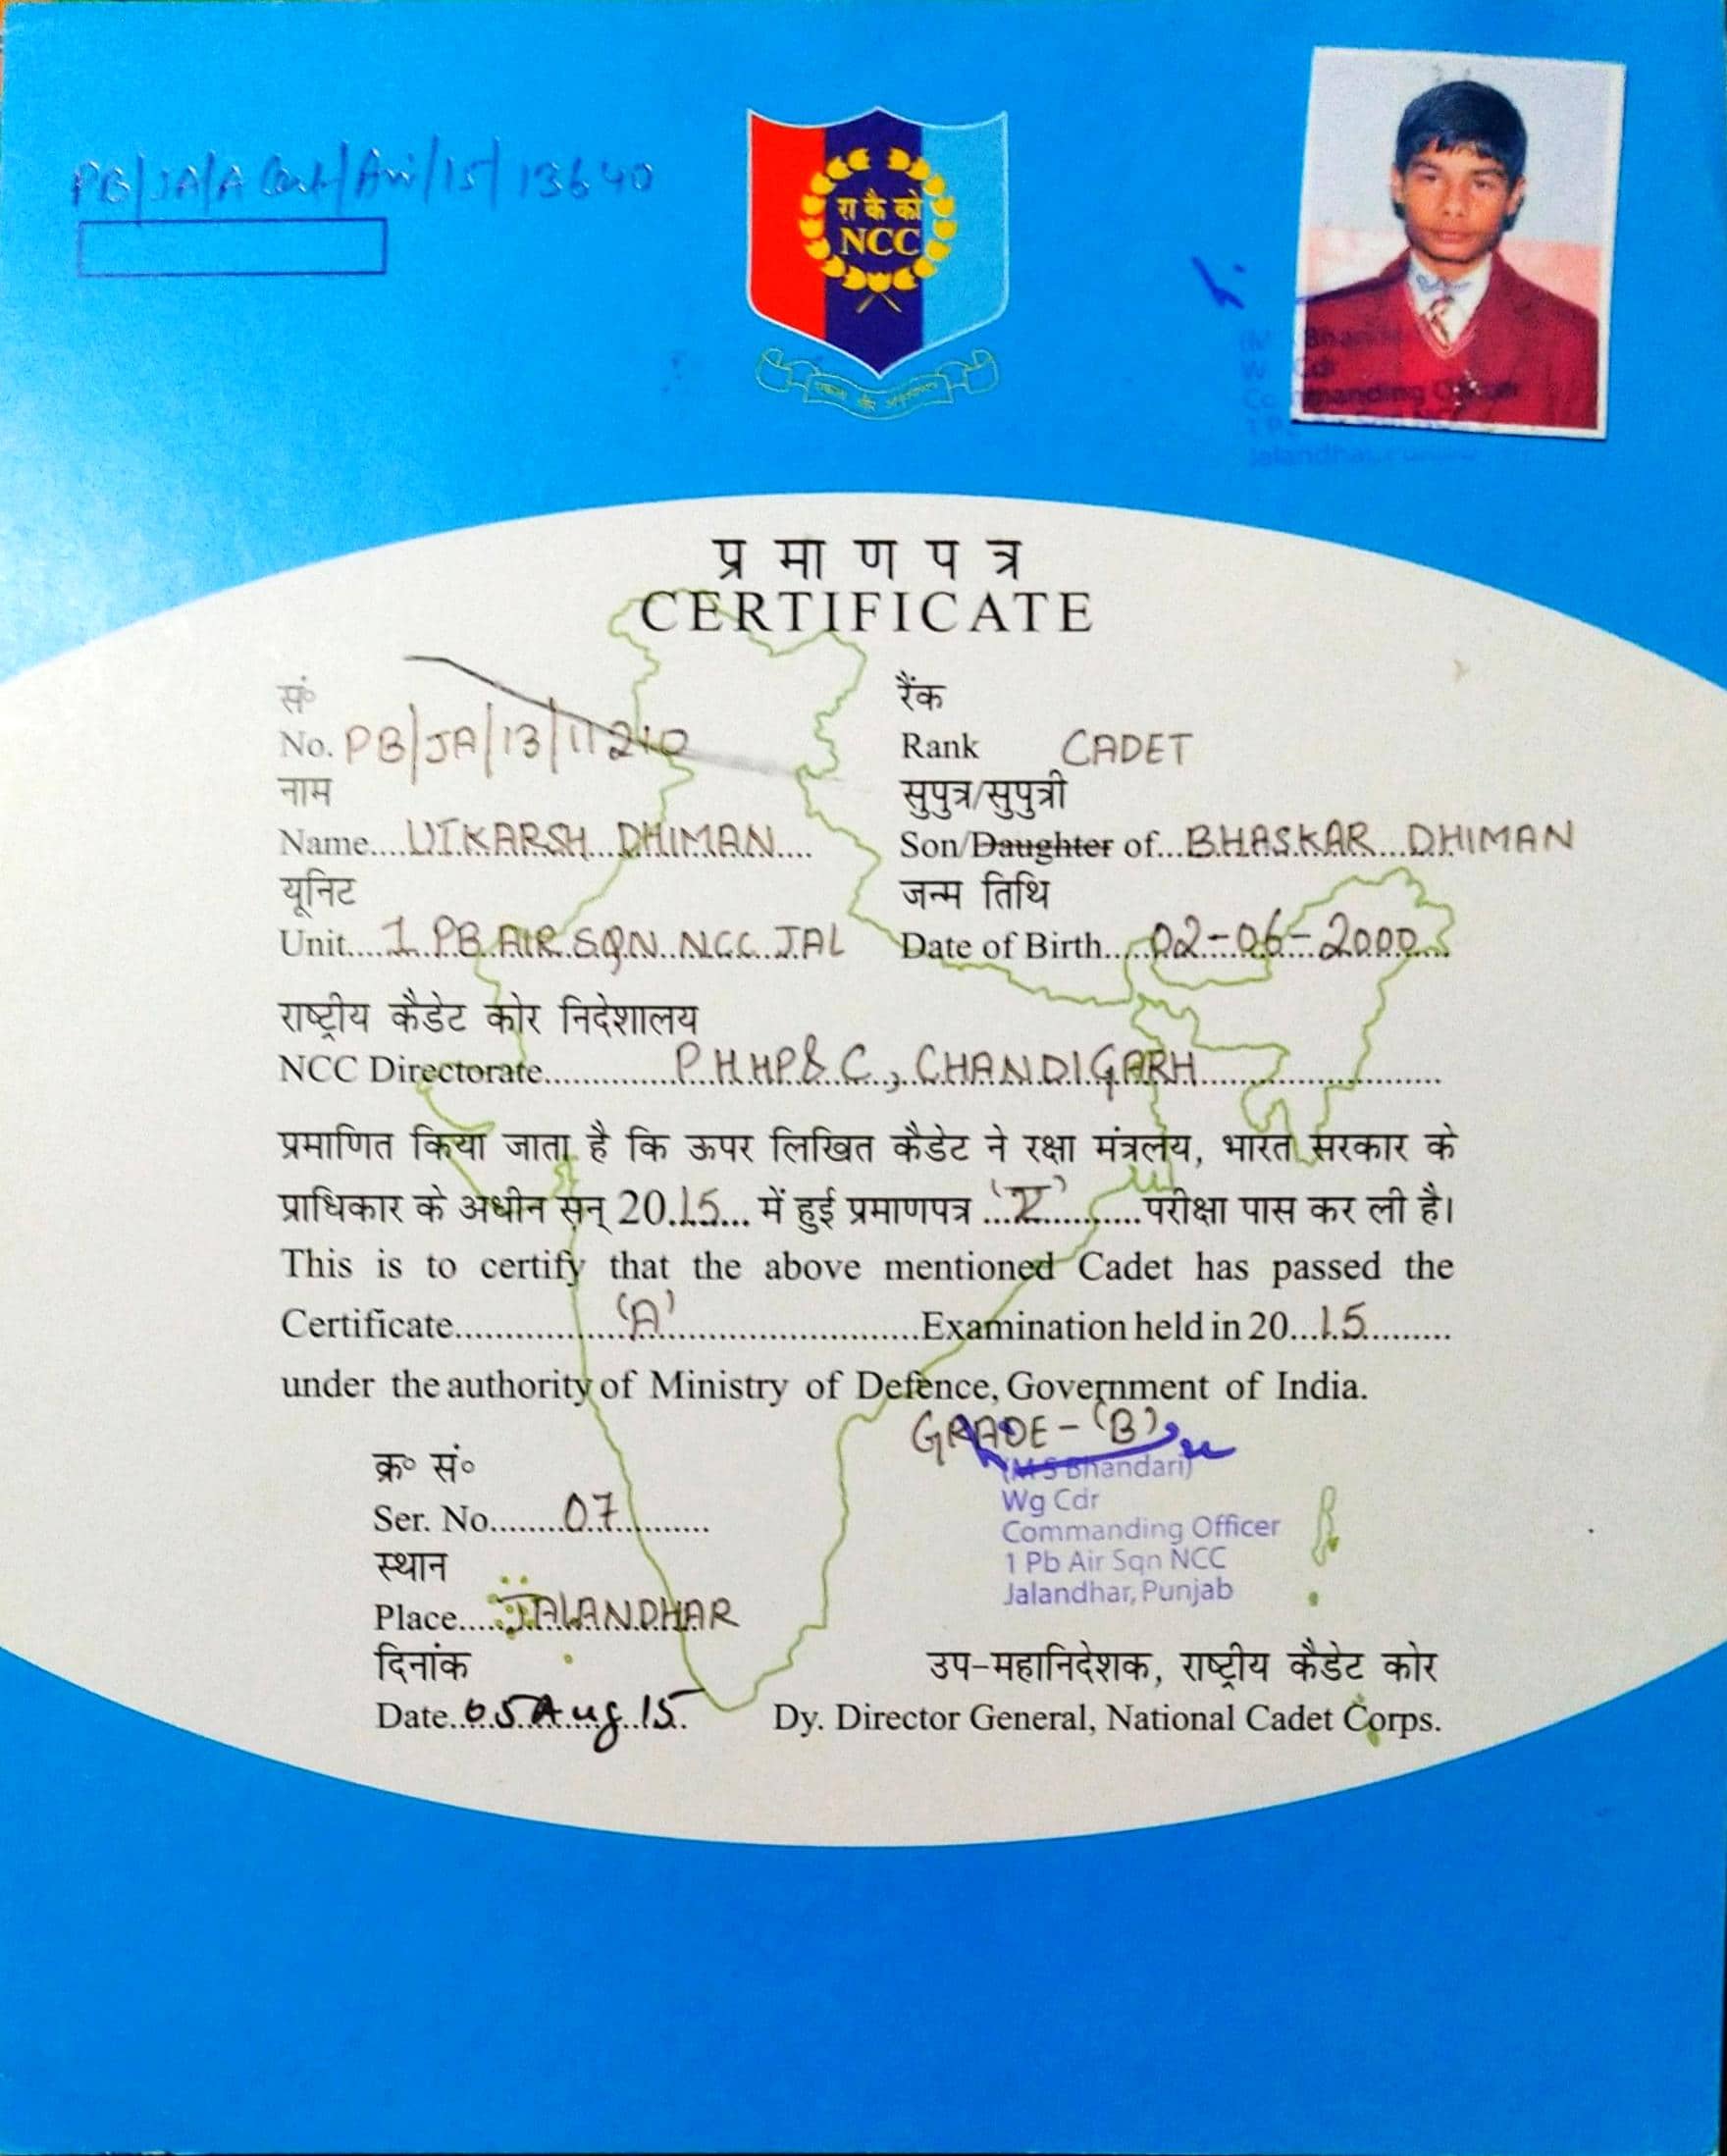 PB/JA/A Cert/Air/15/13640
रा कै को
NCC
एकता और अनुशासन
Commanding Officer
Jalandhar, Punjab
प्रमाणपत्र
CERTIFICATE
सं०
No. PB/JA/13/11210
रैंक
Rank CADET
नाम
Name....UTKARSH DHIMAN....
सुपुत्र/सुपुत्री
Son/Daughter of...BHASKAR DHIMAN
यूनिट
Unit....1 PB AIR SQN NCC JAL
जन्म तिथि
Date of Birth....02-06-2000
राष्ट्रीय कैडेट कोर निदेशालय
NCC Directorate............PHHP&C, CHANDIGARH............
प्रमाणित किया जाता है कि ऊपर लिखित कैडेट ने रक्षा मंत्रलय, भारत सरकार के
प्राधिकार के अधीन सन् 20.15... में हुई प्रमाणपत्र ... ...परीक्षा पास कर ली है।
This is to certify that the above mentioned Cadet has passed the
Certificate............'A'............Examination held in 20...15..........
under the authority of Ministry of Defence, Government of India.
GRADE-'B'
(M S Bhandari)
Wg Cdr
Commanding Officer
1 Pb Air Sqn NCC
Jalandhar, Punjab
क्र० सं०
Ser. No........07..........
स्थान
Place....JALANDHAR
दिनांक
Date..05 Aug 15.
उप-महानिदेशक, राष्ट्रीय कैडेट कोर
Dy. Director General, National Cadet Corps.